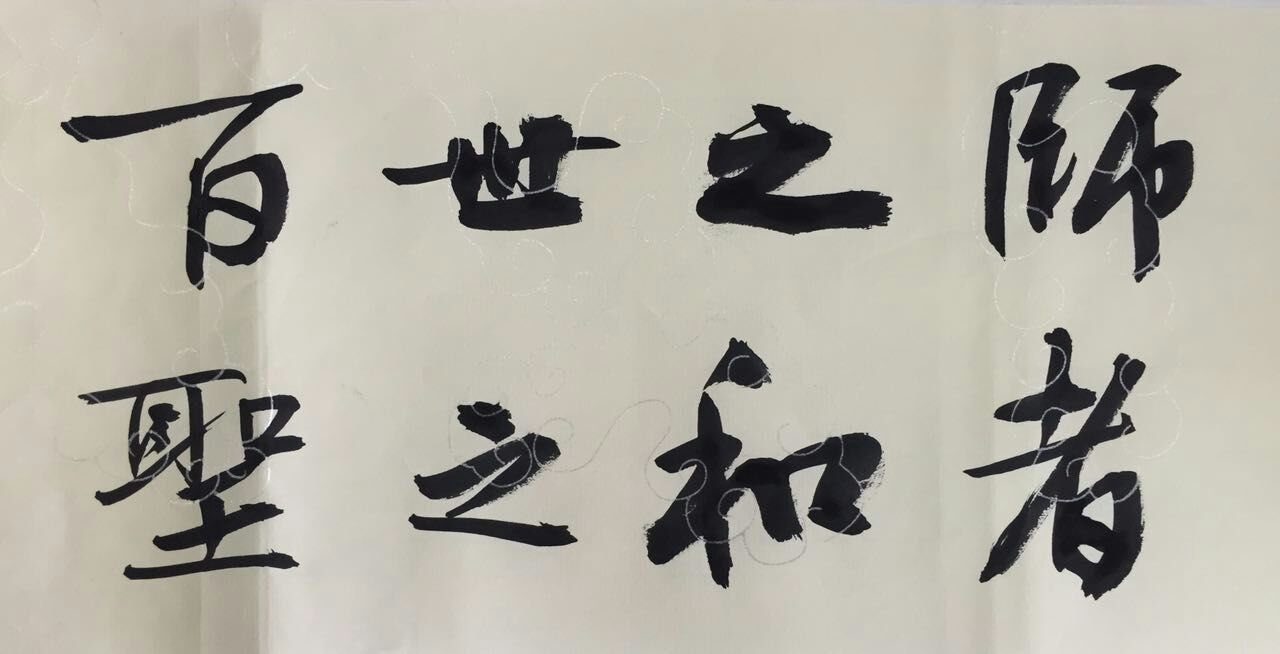 百世之師
聖之和者